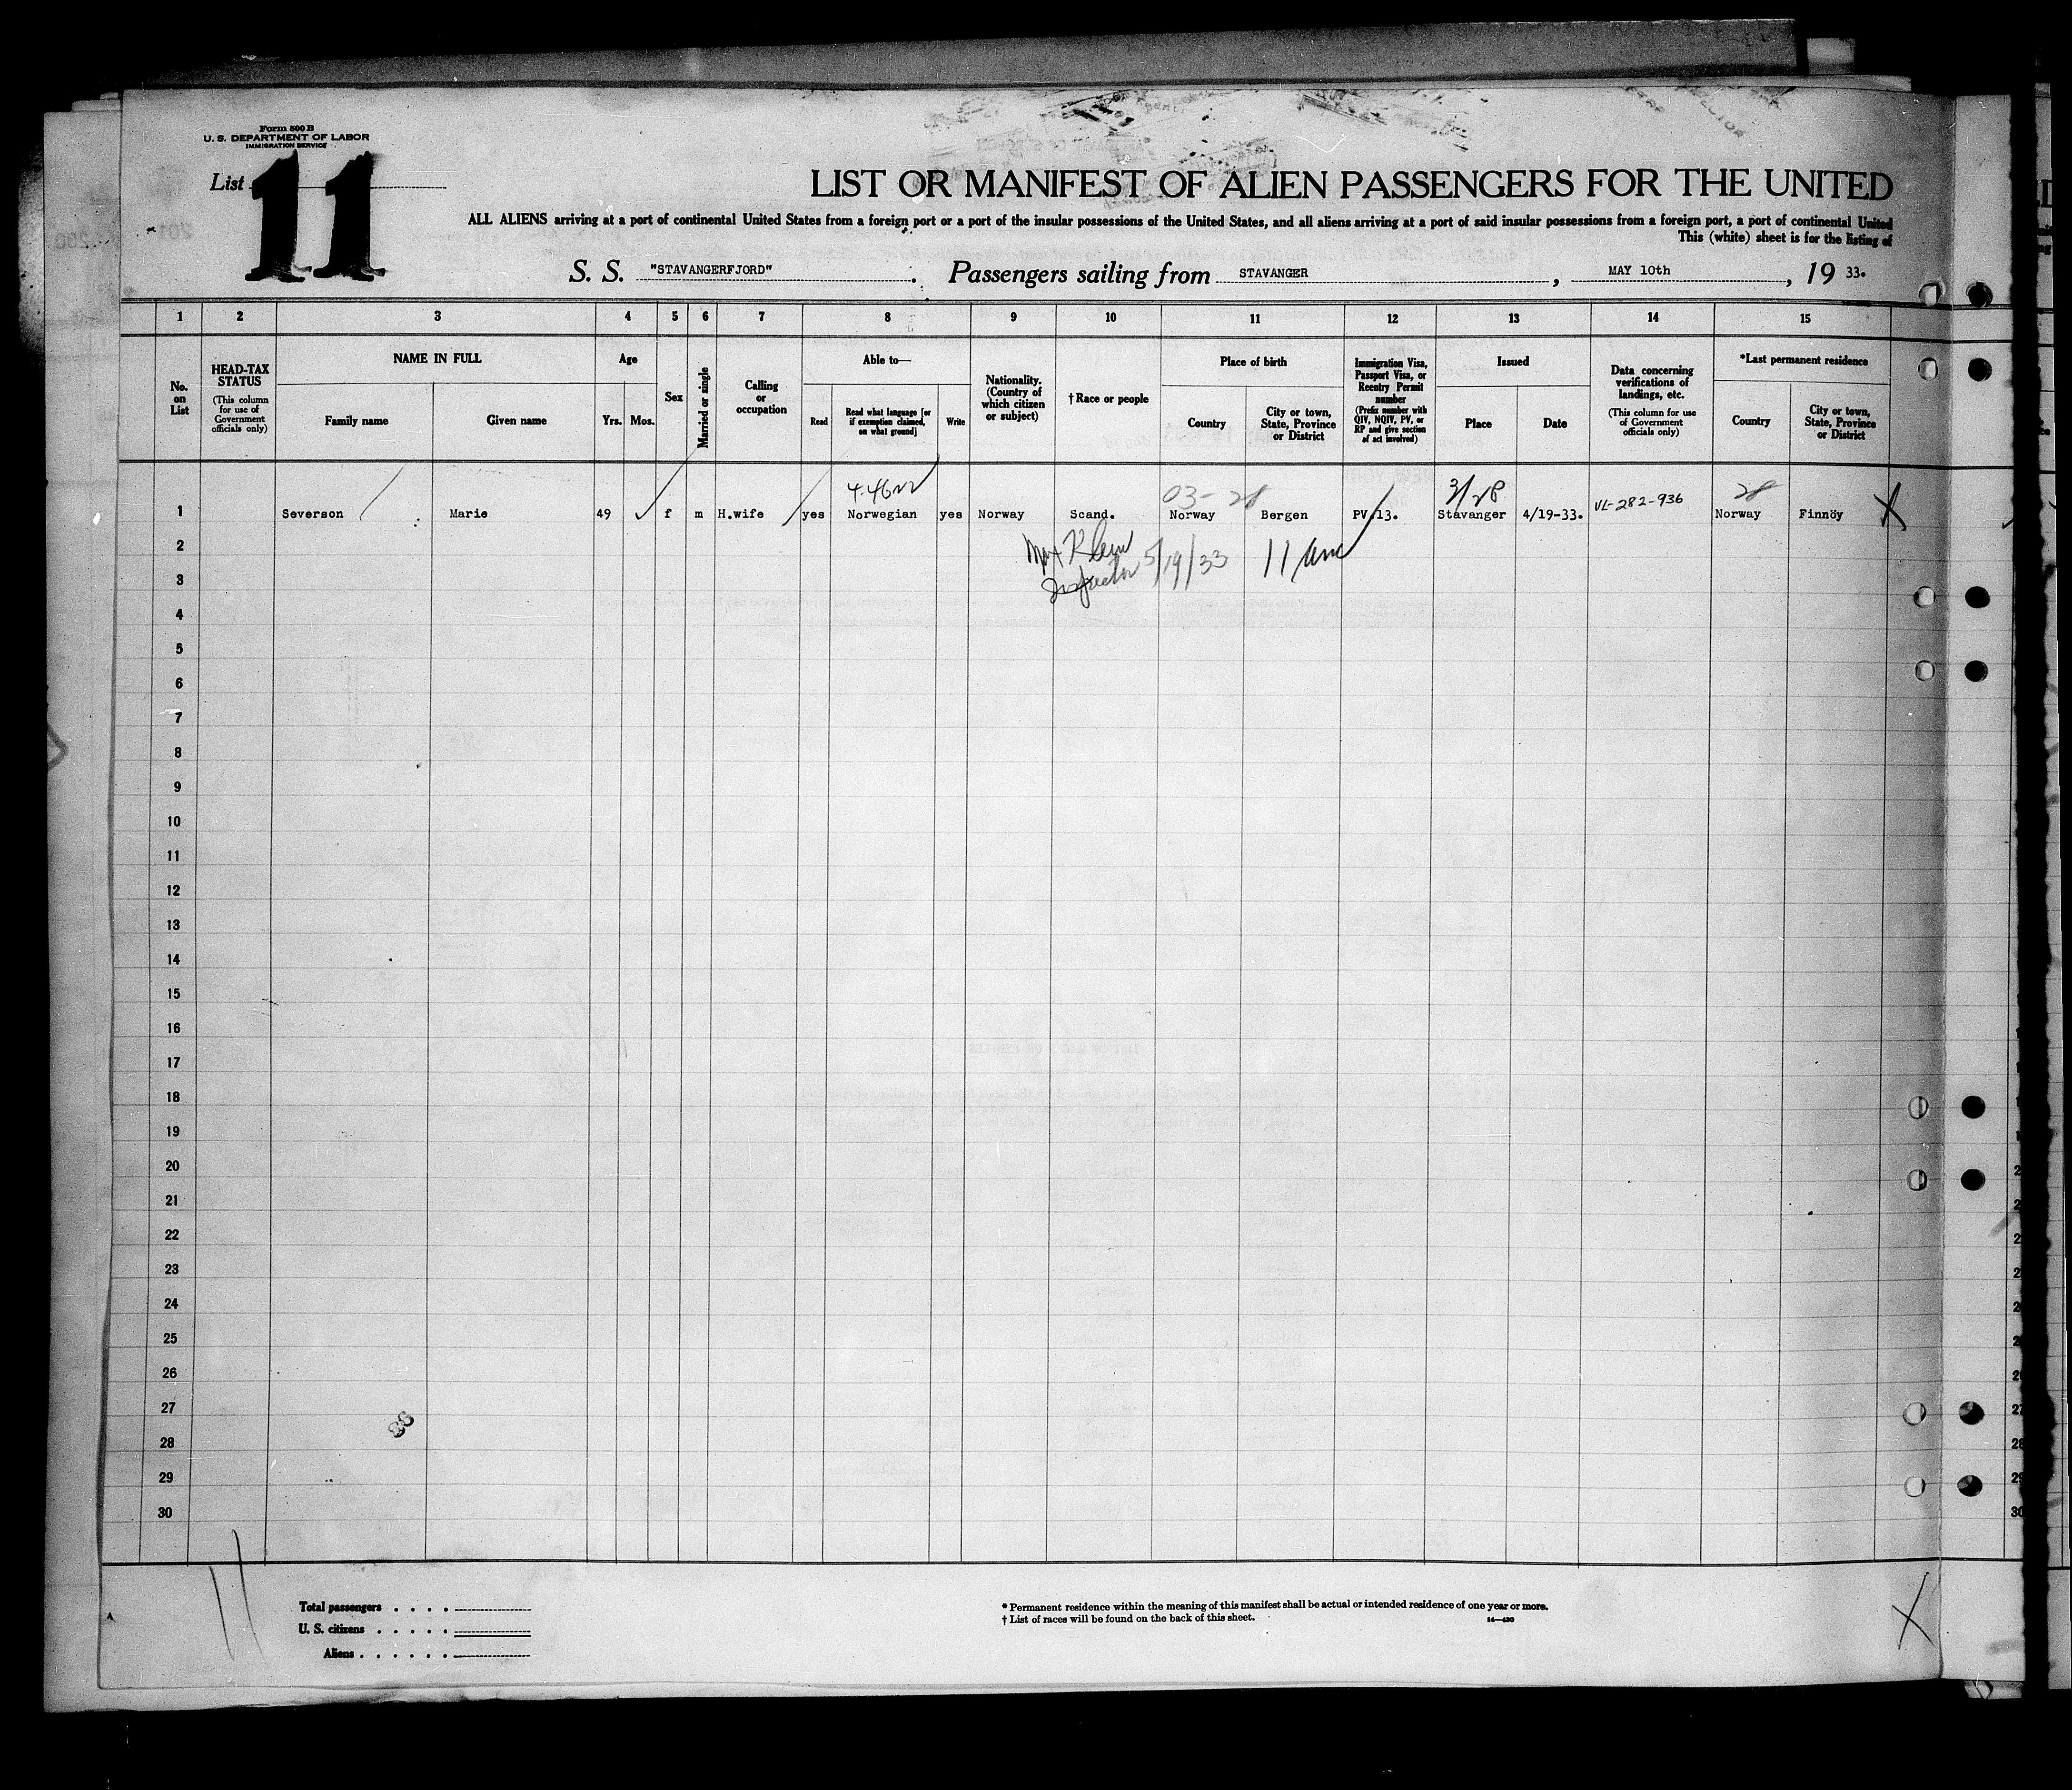 Form 500 B
U. S. DEPARTMENT OF LABOR
IMMIGRATION SERVICE
List 11
LIST OR MANIFEST OF ALIEN PASSENGERS FOR THE UNITED
ALL ALIENS arriving at a port of continental United States from a foreign port or a port of the insular possessions of the United States, and all aliens arriving at a port of said insular possessions from a foreign port, a port of continental United
This (white) sheet is for the listing of
S. S. "STAVANGERFJORD". Passengers sailing from STAVANGER, MAY 10th, 19 33.
1 2 3 4 5 6 7 8 9 10 11 12 13 14 15
No. on List
HEAD-TAX STATUS
(This column for use of Government officials only)
NAME IN FULL
Family name
Given name
Age
Yrs.
Mos.
Sex
Married or single
Calling or occupation
Able to—
Read
Read what language [or if exemption claimed, on what ground]
Write
Nationality. (Country of which citizen or subject)
†Race or people
Place of birth
Country
City or town, State, Province or District
Immigration Visa, Passport Visa, or Reentry Permit number
(Prefix number with QIV, NQIV, PV, or RP and give section of act involved)
Issued
Place
Date
Data concerning verifications of landings, etc.
(This column for use of Government officials only)
*Last permanent residence
Country
City or town, State, Province or District
03- 28 3/28 VL-282-936 28
1 Severson Marie 49 f m H.wife yes Norwegian yes Norway Scand. Norway Bergen PV 13. Stavanger 4/19-33. Norway Finnöy X
2 Max Klein 5/19/33 11 am
3 Inspector
4
5
6
7
8
9
10
11
12
13
14
15
16
17
18
19
20
21
22
23
24
25
26
27
28
29
30
11
Total passengers . . . .
U. S. citizens . . . . .
Aliens . . . . . .
* Permanent residence within the meaning of this manifest shall be actual or intended residence of one year or more.
† List of races will be found on the back of this sheet.
14—430
X